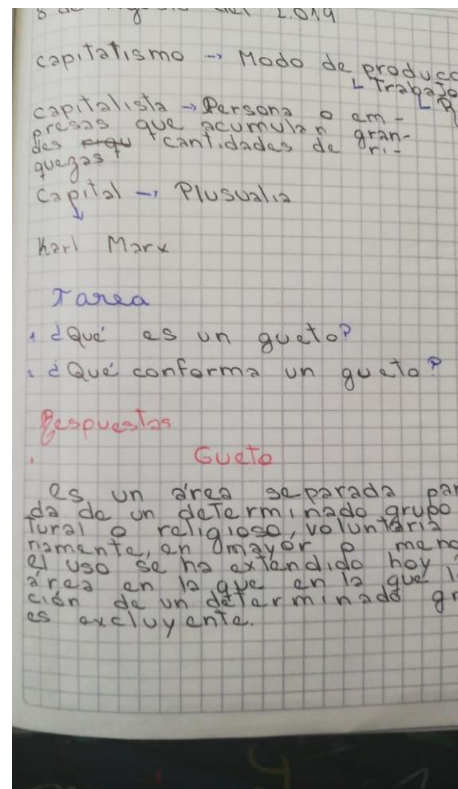 2.019
capitalismo → Modo de producc
↳ Trabajo
↳ R
capitalista → Persona o em-
presas que acumulan gran-
des cantidades de ri-
quezas
Capital → Plusualia
↓
Karl Marx
Tarea
1. ¿Qué es un gueto?
2. ¿Qué conforma un gueto?
Respuestas
1.
Gueto
es un área separada par
da de un determinado grupo
tural o religioso, voluntaria
riamente, en mayor o meno
el uso se ha extendido hoy
área en la que en la que l
ción de un determinado gr
es excluyente.